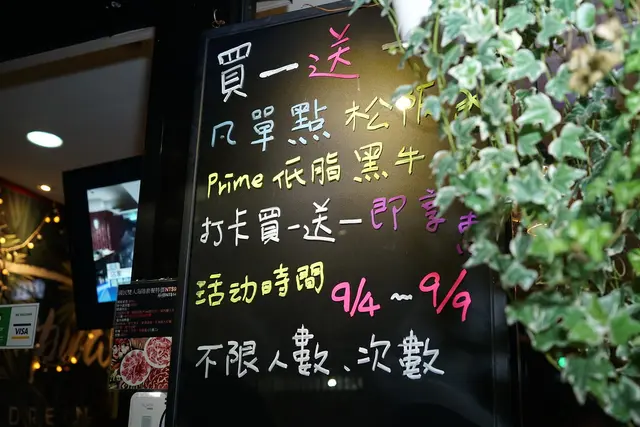 買一送
凡單點松阪
Prime低脂黑牛
打卡買一送一即享
活动時間 9/4~9/9
不限人數、次數
VISA